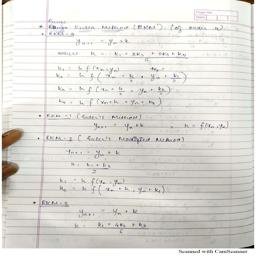 Kutta Method (RKM) (of order 4)
RKM-4
yn+1 = yn + k
where k = k1 + 2k2 + 2k3 + k4
6
k1 = h f(xn, yn)
k2 = h f(xn + h/2, yn + k1/2)
k3 = h f(xn + h/2, yn + k2/2)
k4 = h f(xn+h, yn+k3)
• RKM-1 (Euler's Method)
yn+1 = yn + k , k = f(xn, yn)
• RKM-2 (Euler's Modified Method)
yn+1 = yn + k
k = k1 + k2
2
k1 = h f(xn, yn)
k2 = h f(xn + h, yn + k1)
• RKM-3
yn+1 = yn + k
k = k1 + 4k2 + k3
6
Scanned with CamScanner